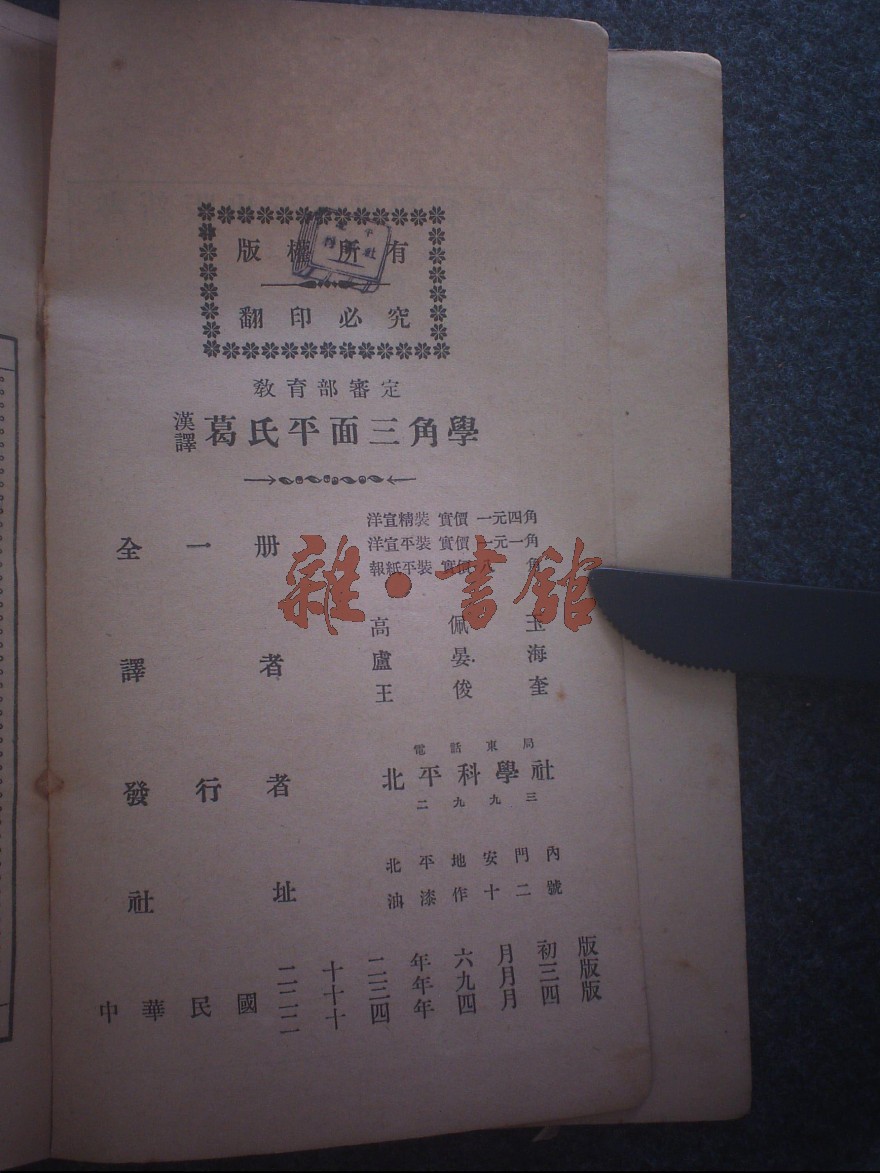 版權所有
翻印必究
教育部審定
漢譯 葛氏平面三角學
全一册
洋宣精裝 實價 一元四角
洋宣平裝 實價 一元一角
報紙平裝 實價 八角
譯者
高佩玉
盧晏海
王俊奎
電話東局
發行者 北平科學社
二九九三
社址
北平地安門內
油漆作十二號
中華民國
二十二年六月初版
二十三年九月三版
二十四年四月四版
雜·書館